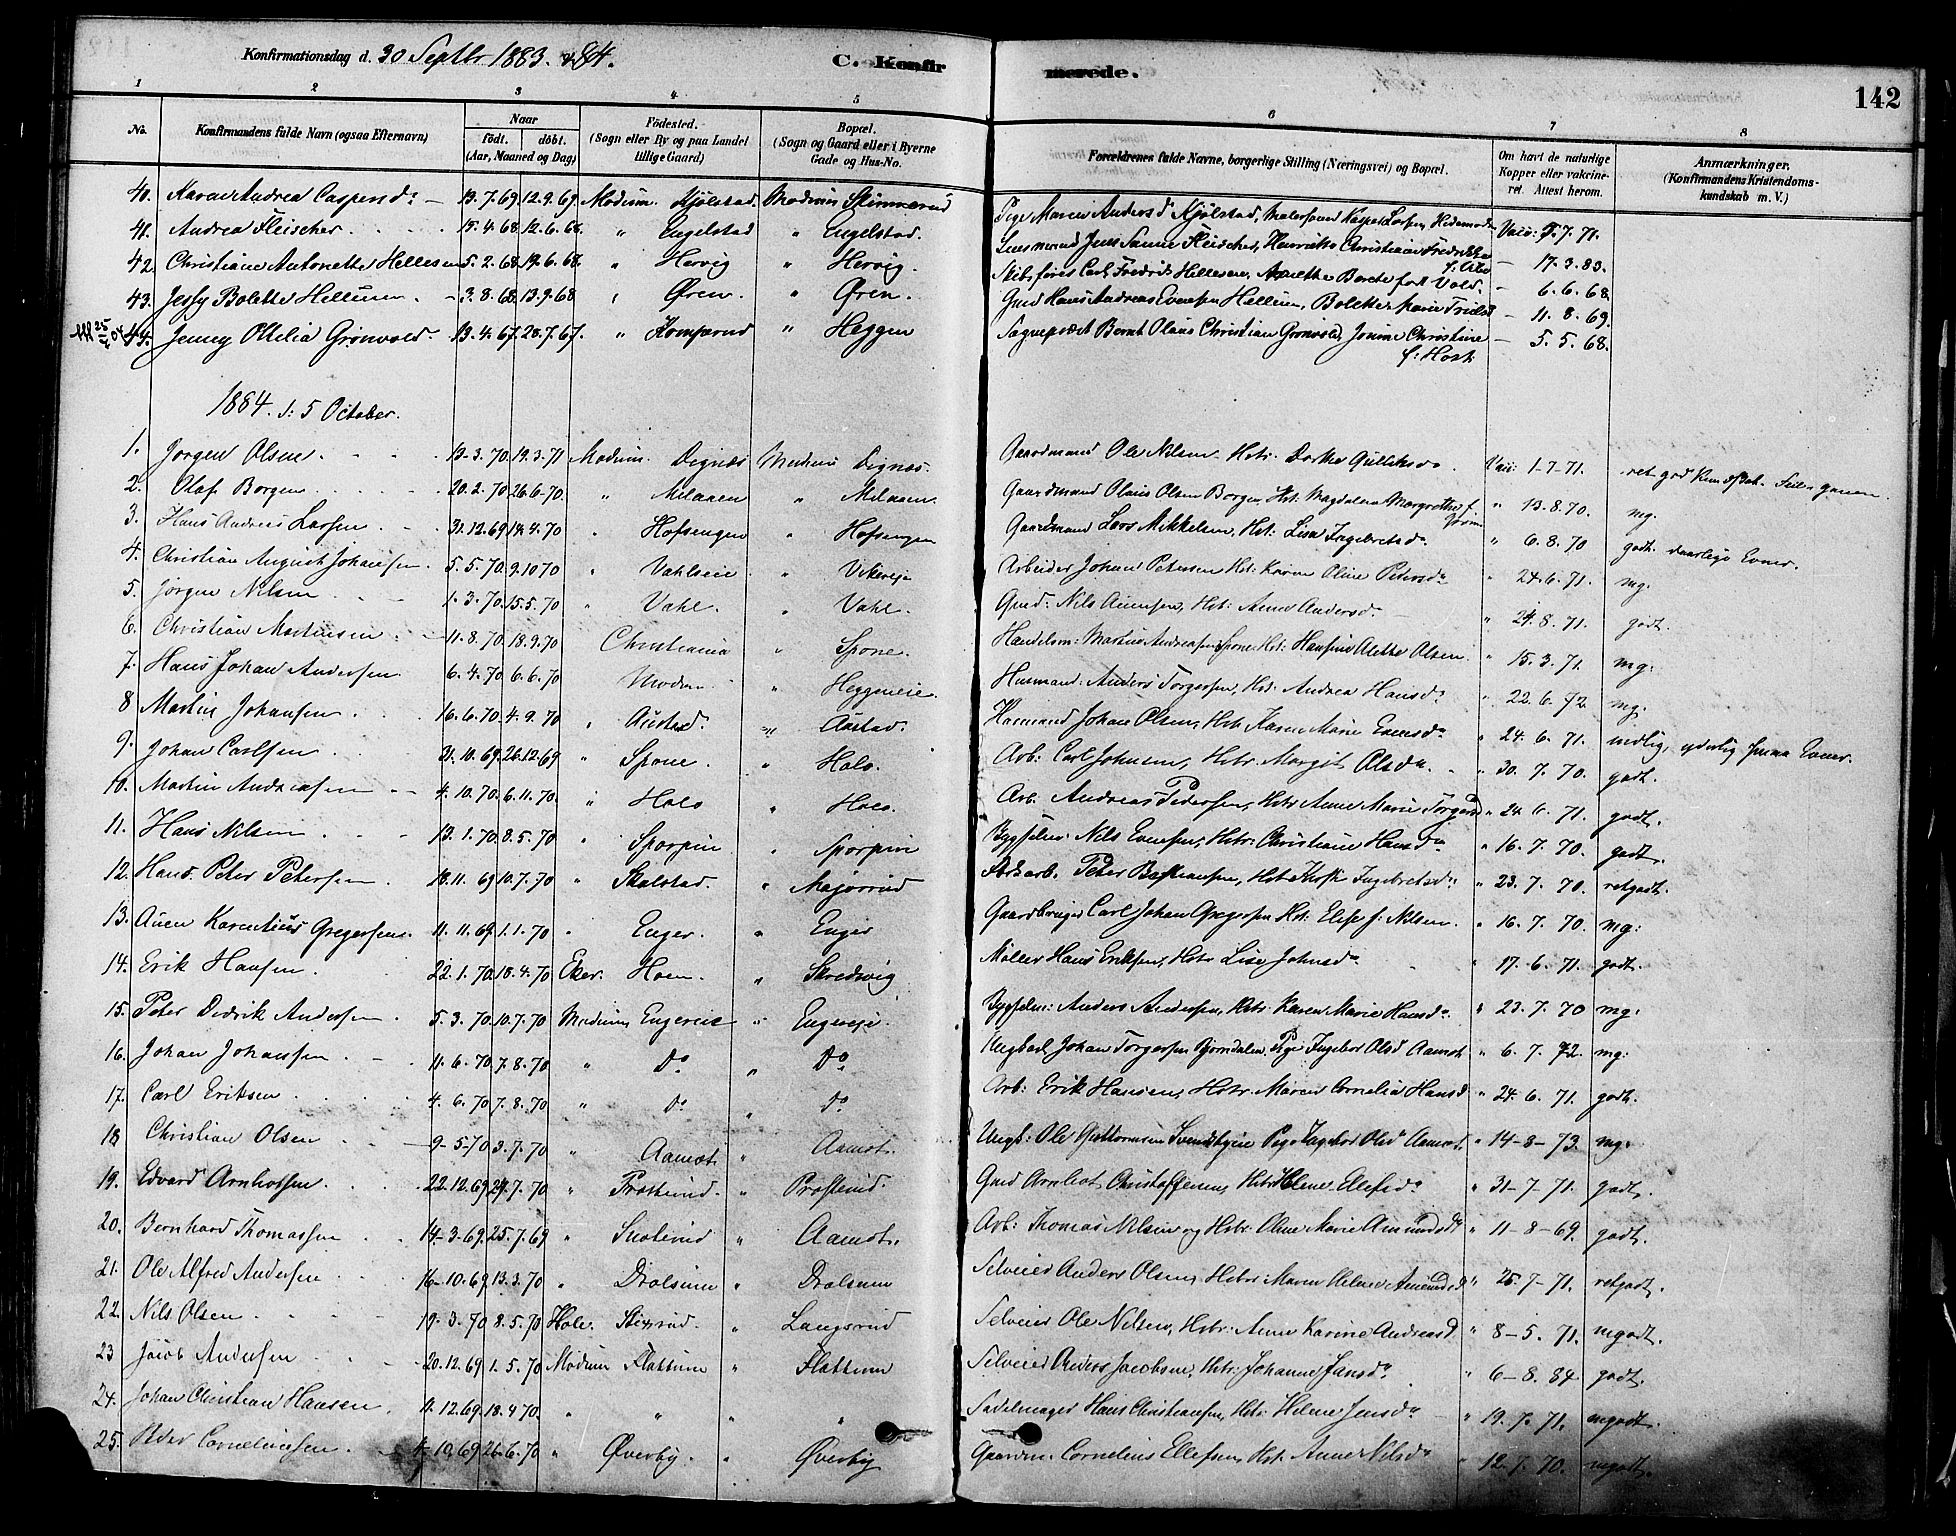 Konfirmationsdag d. 30 Septbr 1883. & 84.
C. Konfirmerede.
142
1 2 3 4 5 6 7 8
No. Konfirmandens fulde Navn (ogsaa Efternavn)
Naar
födt. döbt.
(Aar, Maaned og Dag)
Födested.
(Sogn eller By og paa Landet tillige Gaard)
Bopæl.
(Sogn og Gaard eller i Byerne Gade og Hus-No.
Forældrenes fulde Navne, borgerlige Stilling (Næringsvei) og Bopæl.
Om havt de naturlige Kopper eller vakcineret. Attest herom.
Anmærkninger.
(Konfirmandens Kristendomskundskab m. V.)
40. Karen Andrea Caspersd. 13.7.69 12.9.69 Modum Kjölstad Modum Pige Maren Andersd Kjölstad, Vacc: 7.71.
41. Andrea Fleischer 15.4.68 12.6.68 " Engelstad " Engelstad. Lensmand Jens Fleischer, Henriette Christiane Fredrikke — 17.3.83.
42. Christiane Antonette Hellesen 5.2.68 19.6.68 " Hervig " Hervig. Skibsfører Carl Fredrik Hellesen, Anette Berete født Vold. — 6.6.68
43. Jessy Bolette Hellum 3.8.68 13.9.68 " Øren. " Øren. Gmd Hans Andreas Evensen Hellum, Bolette — 11.8.69.
44. Jenny Otilia Grönvold. 19.4.67 28.7.67. " Komperud " Heggen Sognepræst Bernt Olaus Christian Grönvold, Christine f: Horst — 5.5.68.
1884. d: 5 October.
1. Jörgen Olsen. 13.3.70 19.3.71 Modum. Dignæs Modum Dignæs. Gaardmand Ole Nilsen Hstr: Dorthe Gulliksd. Vacc: 1.7.71. ret god Kundskab.
2. Olaf Borgen 20.2.70 26.6.70 " Milaaen " Milaaen. Gaardmand Olaus Olsen Borgen, Hst: Magdalena Margrethe f. " 13.8.70. mg.
3. Hans Andreas Larsen 31.12.69 14.4.70 " Hofsengen " Hofsengen Gaardmand Lars Mikkelsen, Hst: Lisa Ingebretsd. " 6.8.70 godt. daarlige Evner.
4. Christian August Johansen. 5.5.70 9.10 70 " Vahlseie " Vikereje Arbeider Johan Petersen Hst: Karen Oline Petersd. " 24.6.71. mg.
5. Jörgen Nilsen 1.3.70 15.5.70 " Vahl. " Vahl. Gmd: Nils Hst: Anne Andersd. " 24.8.71. godt.
6. Christian Martinsen 11.8.70 18.9.70 Christiania " Spone. Handelsm: Martin Andreassen Spone, Hst: Hansine Alette Olsen. " 15.3.71. mg:
7. Hans Johan Andersen 6.4.70 6.6.70 Modum " Heggeneie. Husmand: Anders Torgersen, Hst: Andrea Hansd. " 22.6.72. mg.
8 Martin Johansen 16.6.70 4.9.70 " Austad. " Austad. Johan Olsen, Hst: Karen Marie Evensd. " 24.6.71. mdlig, yderlig smaa Evner.
9. Johan Carlsen 21.10.69 26.12.69 " Spone. " Holo. Arb: Carl Johnsen, Hstr: Margit Olsd. " 30.7.70. godt.
10. Martin Andreasen 4.10.70 6.11.70. " Holo " Holo. Arb. Andreas Pedersen, Hstr Anne Marie Torgersd " 24.6.71. godt.
11. Hans Nilsen 13.1.70 8.5.70 " Sporpin " Sporpin Bygselm: Nils Evensen, Hstr: Christiane Hansd. " 16.7.70. godt.
12. Hans Peter Petersen 18.11.69 10.7.70 " Skalstad. " Majorrud Peter Bastiansen, Hst: Ingebretsd. " 23.7.70. retgodt.
13. Auen Karentius Gregersen. 11.11.69 1.1.70 " Enger. " Enger Gaardbruger Carl Johan Gregersen Hst: Elise f: Nilsen. " 16.7.70. mg:
14. Erik Hansen. 22.1.70 18.4.70 Eker. Hoen. " Skredsvig Möller Hans Eriksen, Hstr Lise Johnsd. " 17.6.71. godt.
15. Peter Didrik Andersen 5.3.70 10.7.70 Modum Engereie " Engereje. Bygselm: Anders Andersen, Hstr: Karen Marie Hansd. " 23.7.70 mg:
16. Johan Johansen 11.6.70 7.8.70 " Do " Do Ungkarl Johan Torgersen Björndalen, Pige: Ingebor Olsd Aamot. " 6.7.72. mg:
17. Carl Eriksen 4.6.70 7.8.70 " do " do Arb: Erik Hansen, Hstr: Maren Cornelia Hansd " 24.6.71. godt.
18. Christian Olsen 9-5-70 3.7.70 " Aamot. " Aamot. Ungk: Ole Guttormsen Pige Ingebor Olsd Aamot. " 14-8-73. mg.
19. Edvard Arnkossen 22.12.69 24.7.70 " Pröstrud. " Pröstrud. Gmd Christoffersen, Hstr: Helene Ellefsd. " 31-7-71. godt.
20. Bernhard Thomassen 14-3-69 25.7.69 " Snoterud " Aamot. Arb: Thomas Nilsen og Hstr. Oline Marie Amundsd. " 11-8-69. godt.
21. Ole Alfred Andersen 16-10.69 13.3.70 " Drolsum " Drolsum Selveier Anders Olsen, Hstr: Maren Helene Amundsd " 25.7-71. retgodt.
22. Nils Olsen 19.3.70 8.5.70 Hole. Stixrud. " Langsrud Selveier Ole Nilsen, Hstr: Anne Karine Andreasd. " 8-5.71. mgodt.
23 Jacob Andersen 20.12.69 1.5.70 Modum Flattum " Flattum Selveier Anders Jacobsen, Hstr: Johanne Jansd. " 6-8.84 godt.
24. Johan Christian Hansen. 11.12.69 18.4 70. " " " " Sadelmager Hans Christiansen, Hstr: Helene Jensd. " 19.7.71. mgodt.
25. Peder Corneliussen. 4.10.69 26.6.70 " Øverby. " Øverby Gaardm. Cornelius Ellefsen, Hst: Anne Nilsd. " 12.7.70. mgodt.